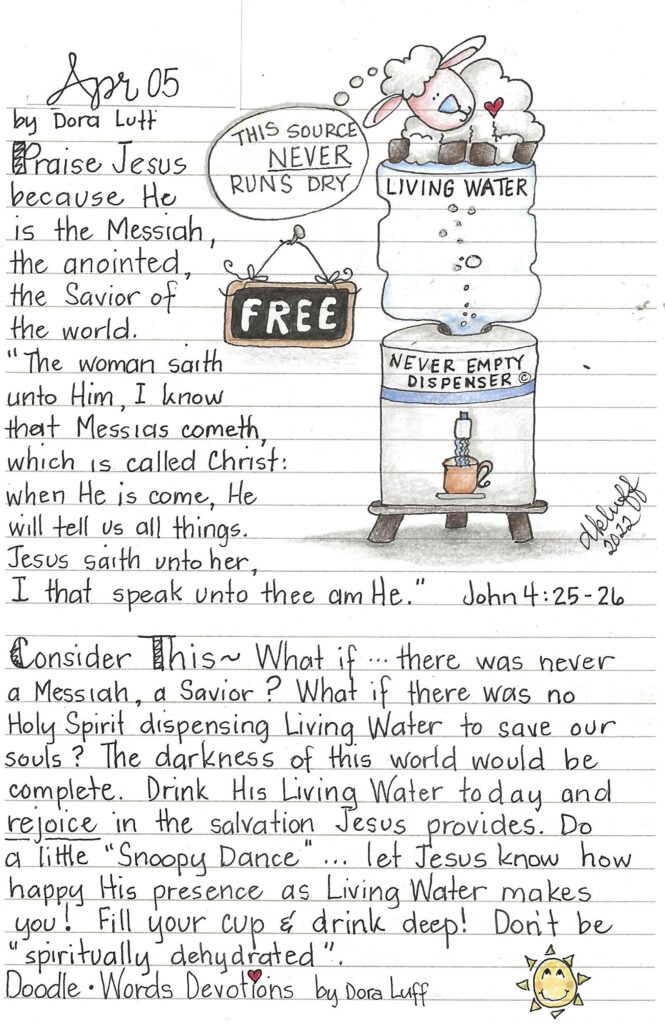 Apr 05
by Dora Luff
Praise Jesus
because He
is the Messiah,
the anointed,
the Savior of
the world.
"The woman saith
unto Him, I know
that Messias cometh,
which is called Christ:
when He is come, He
will tell us all things.
Jesus saith unto her,
I that speak unto thee am He." John 4:25-26
THIS SOURCE
NEVER
RUNS DRY
LIVING WATER
FREE
NEVER EMPTY
DISPENSER ©
dkluff
2022
Consider This~ What if ... there was never
a Messiah, a Savior? What if there was no
Holy Spirit dispensing Living Water to save our
souls? The darkness of this world would be
complete. Drink His Living Water today and
rejoice in the salvation Jesus provides. Do
a little "Snoopy Dance"... let Jesus know how
happy His presence as Living Water makes
you! Fill your cup & drink deep! Don't be
"spiritually dehydrated".
Doodle • Words Devotions by Dora Luff